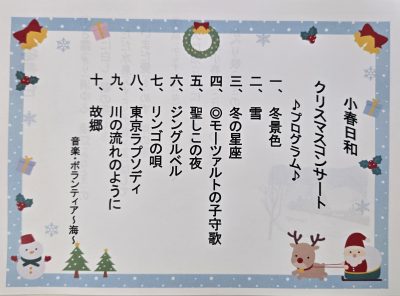 小春日和
クリスマスコンサート
♪プログラム♪
一、冬景色
二、雪
三、冬の星座
四、◎モーツァルトの子守歌
五、聖しこの夜
六、ジングルベル
七、リンゴの唄
八、東京ラプソディ
九、川の流れのように
十、故郷
音楽・ボランティア～海～